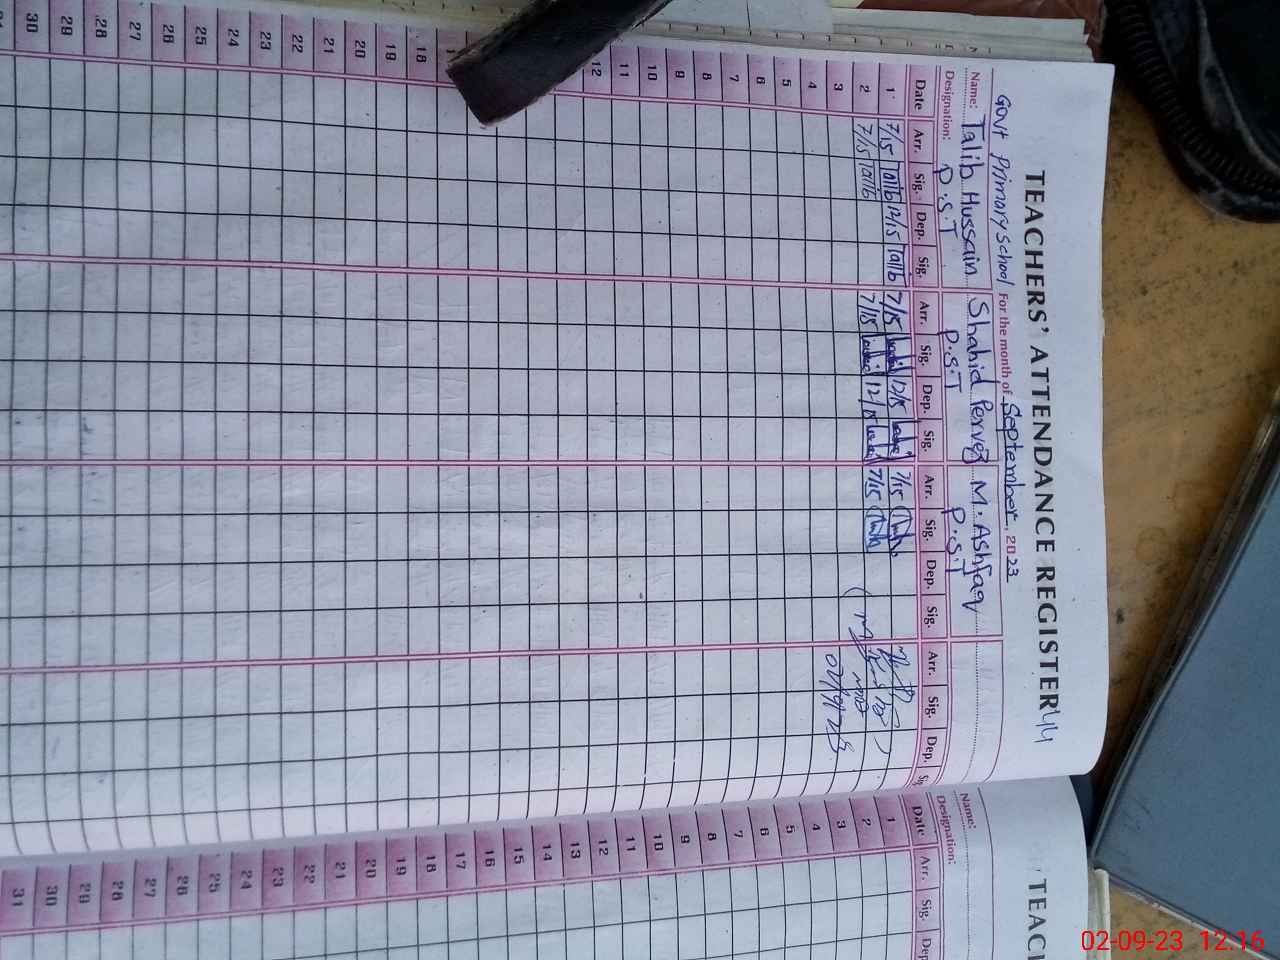 TEACHERS' ATTENDANCE REGISTER 44
Govt Primary School For the month of September, 2023
Name: Talib Hussain Shahid Pervez M. Ashfaq
Designation: P.S.T P.S.T P.S.T
Date Arr. Sig. Dep. Sig. Arr. Sig. Dep. Sig. Arr. Sig. Dep. Sig. Arr. Sig. Dep.
1 7/15 Talib 12/15 Talib 7/15 12/15 7/15
2 7/15 Talib 7/15 12/15 7/15
3 02/9/23
4
5
6
7
8
9
10
11
12
18
19
20
21
22
23
24
25
26
27
28
29
30
TEAC
Name:
Designation:
Date Arr. Sig.
1
2
3
4
5
6
7
8
9
10
11
12
13
14
15
16
17
18
19
20
21
22
23
24
25
26
27
28
29
30
31
02-09-23 12:16